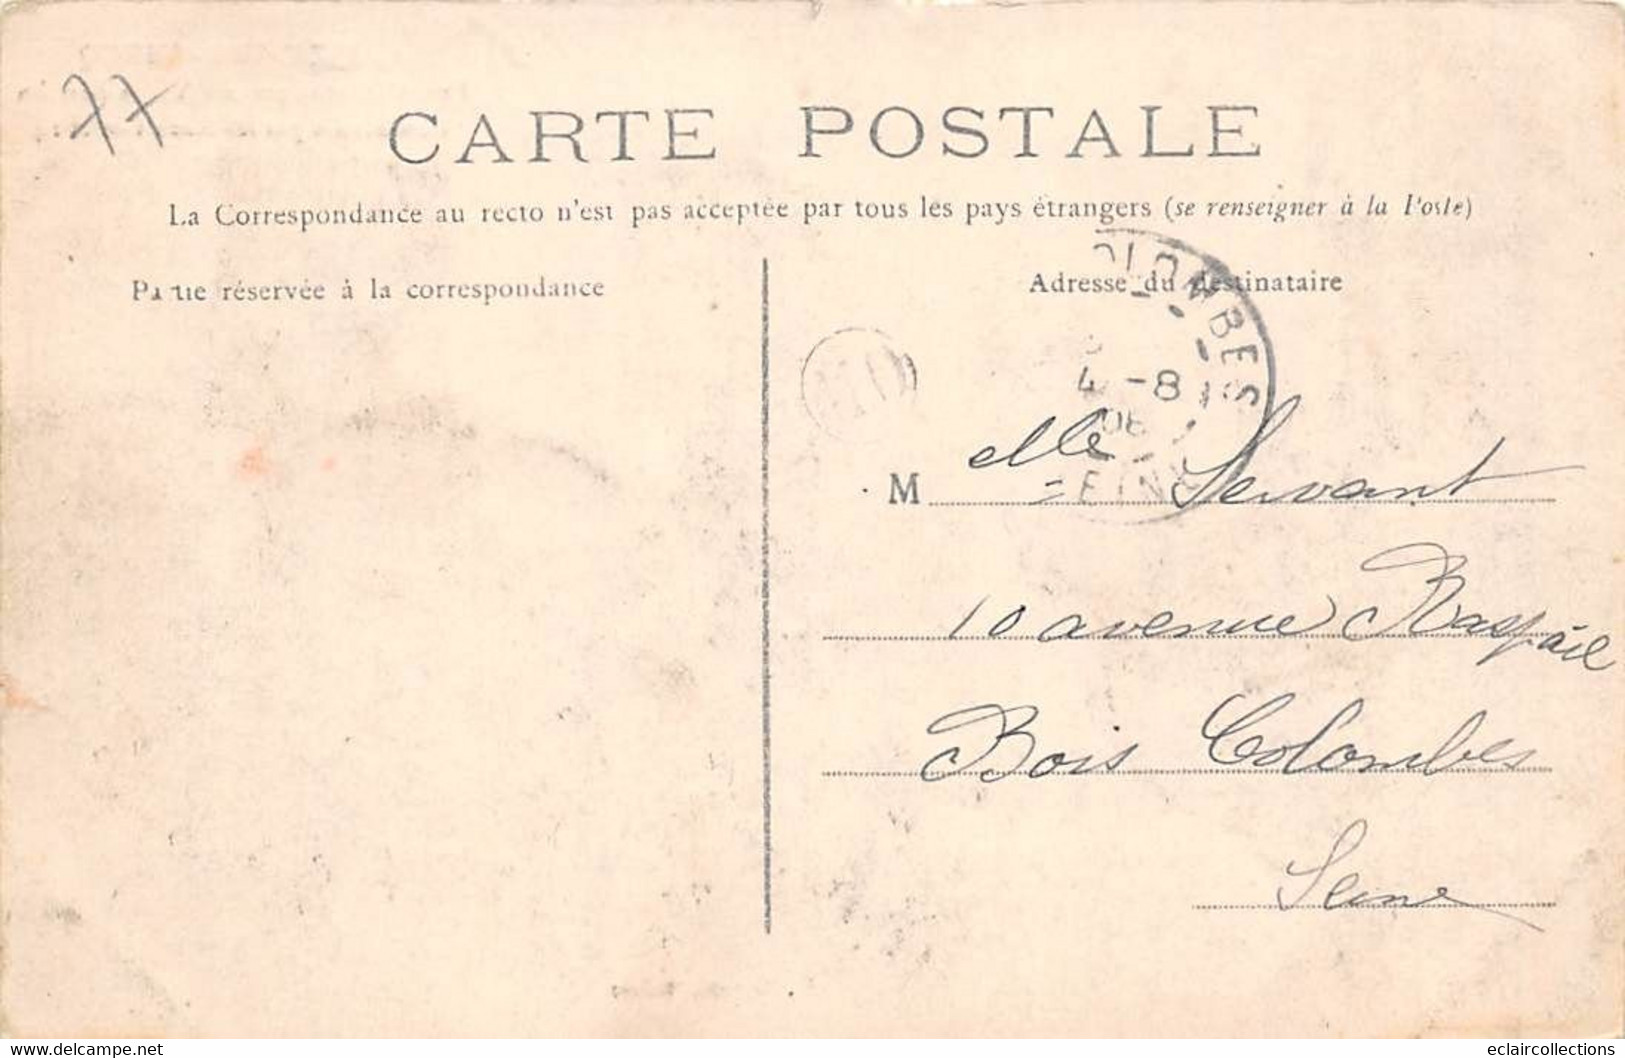 77
CARTE POSTALE
La Correspondance au recto n'est pas acceptée par tous les pays étrangers (se renseigner à la Poste)
Partie réservée à la correspondance
Adresse du destinataire
OLOMBES
4 -8
06
SEINE
M elle Servant
10 avenue Raspail
Bois Colombes
Seine
https://www.delcampe.net
eclaircollections